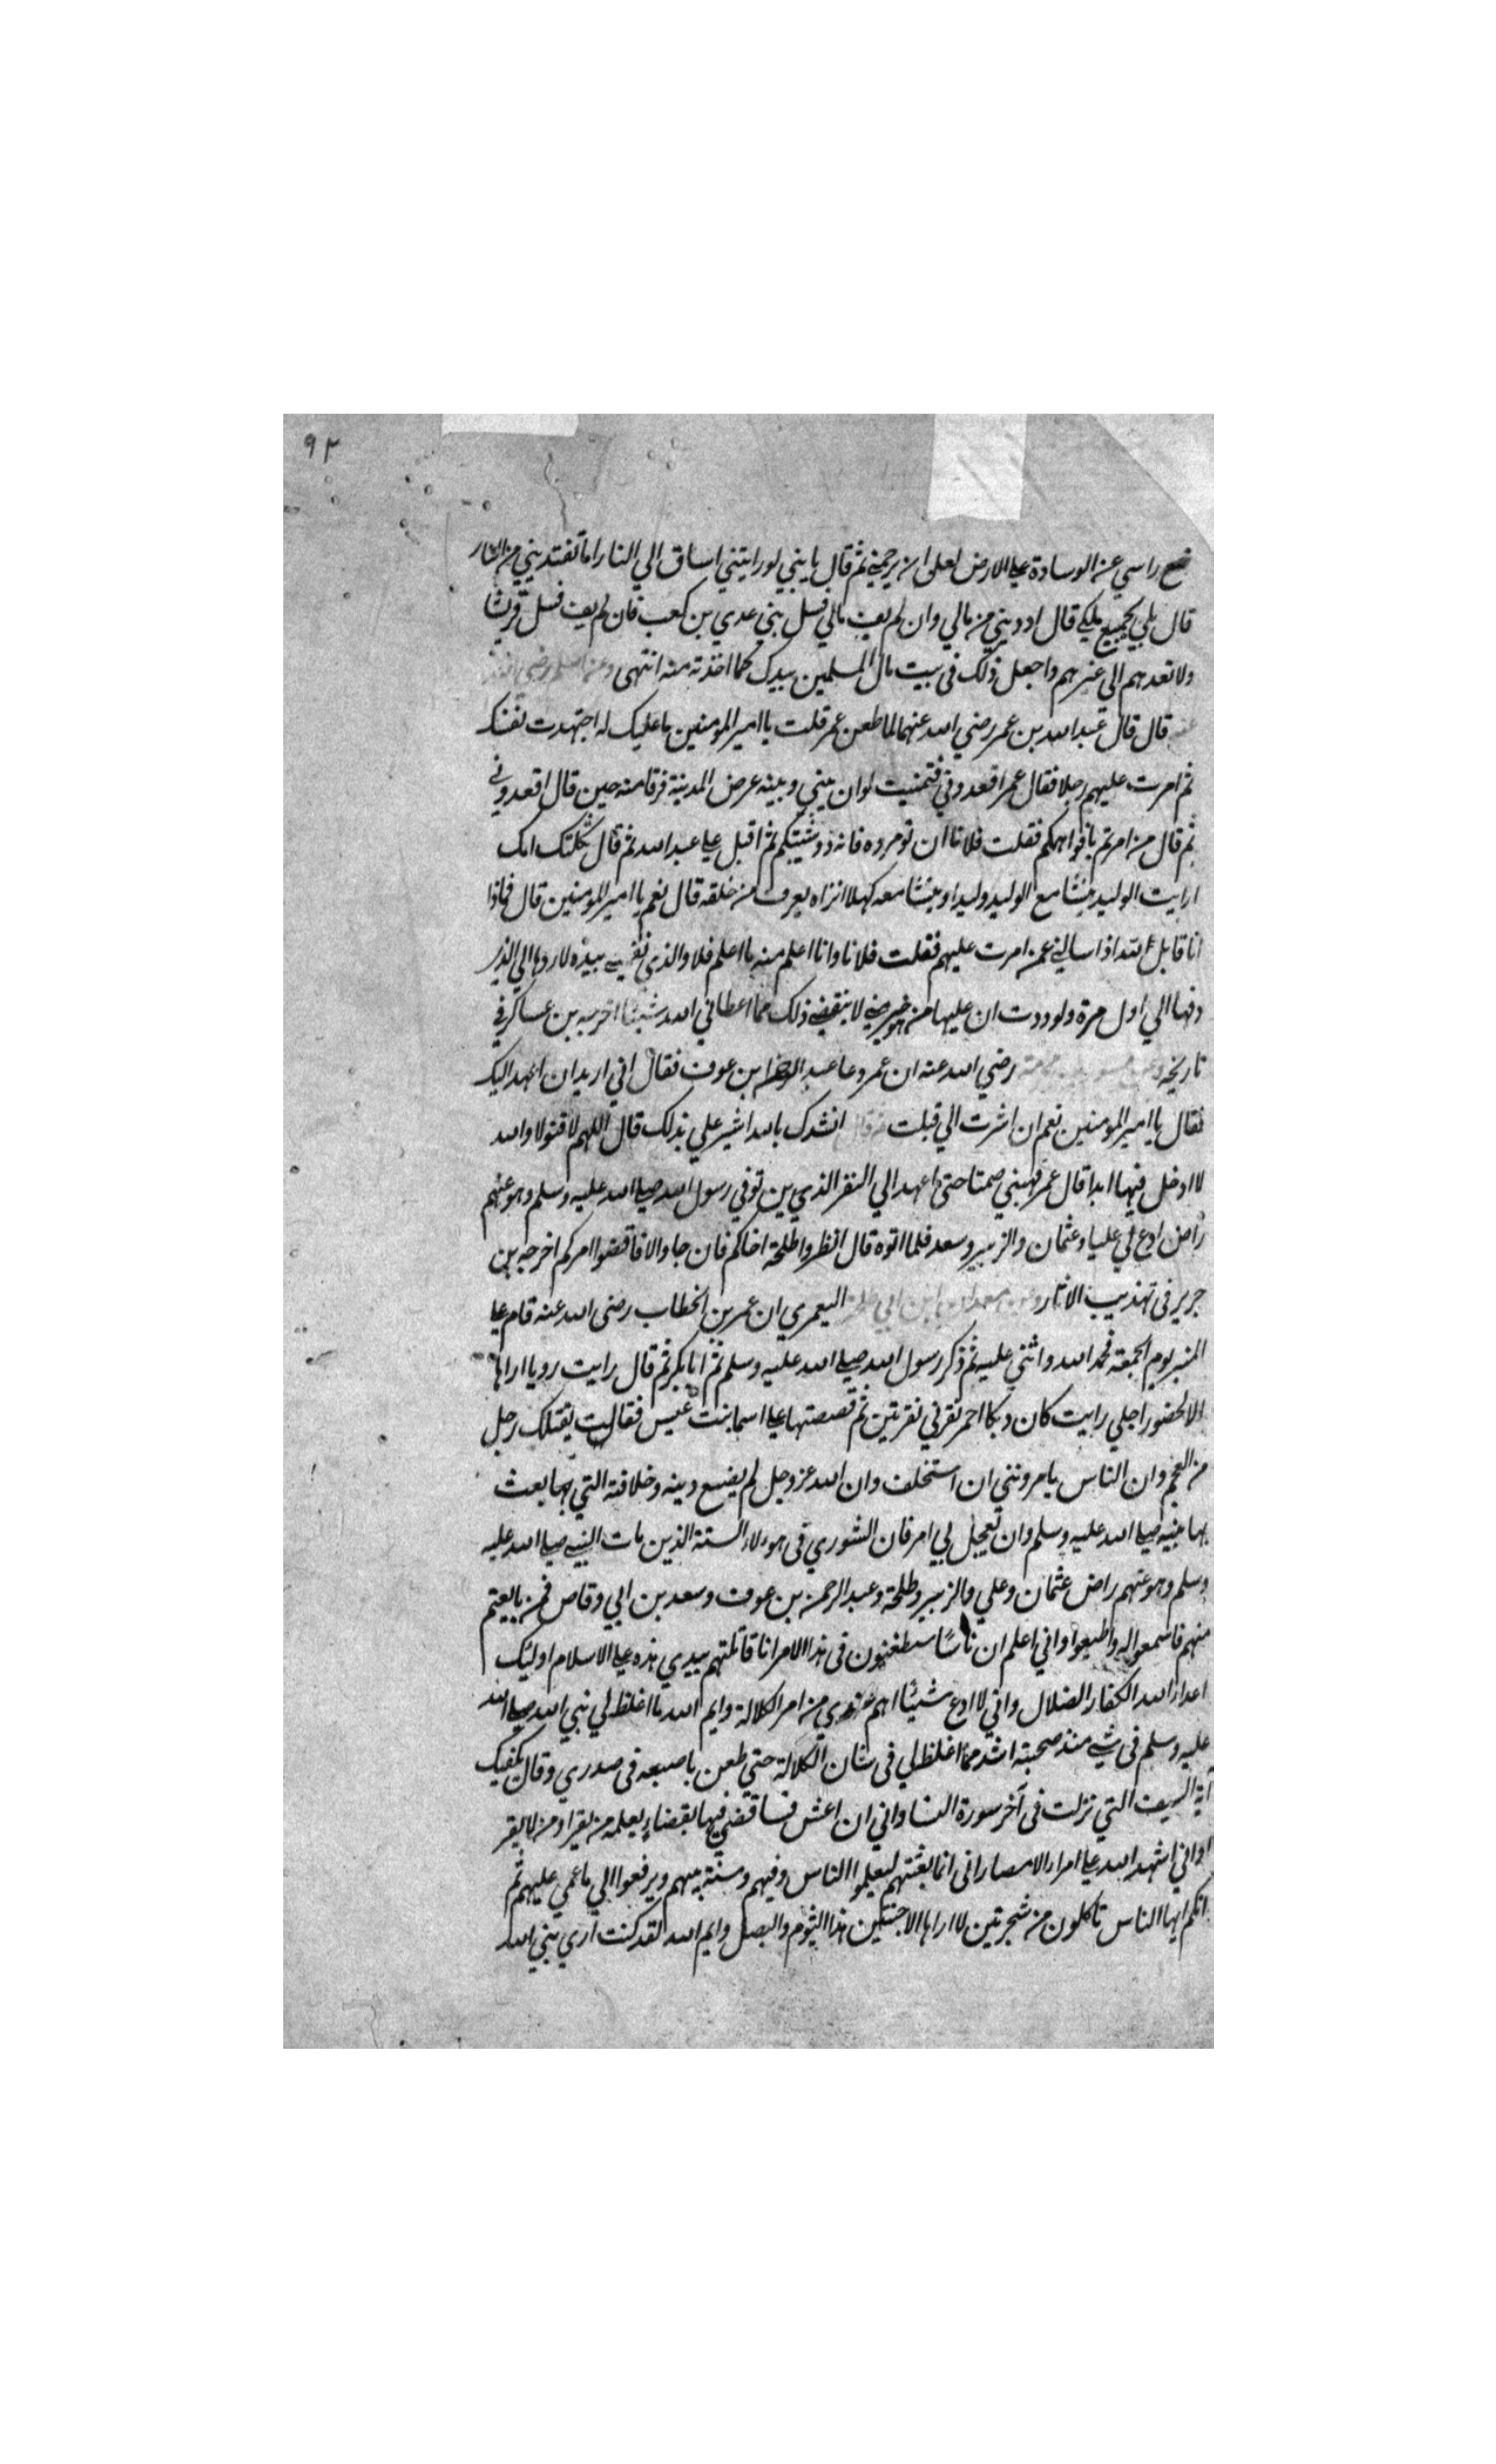 ٩٢
ضع راسي عن الوسادة على الارض لعل ان يرحمني ثم قال يا بني لو رايتني اساق الي النار اما تفتديني من النار
قال بلي بجميع ملكي قال اد ديني من مالي وان لم يف مالي فسل بني عدي بن كعب فان لم يف فسل قريشا
ولا تعدهم الي غيرهم واجعل ذلك في بيت مال المسلمين بيدك كما اخذته منه انتهى وعن اسلم رضي الله
عنه قال قال عبد الله بن عمر رضي الله عنهما لما طعن عمر قلت يا امير المومنين ما عليك لو اجتهدت نفسك
ثم امرت عليهم رجلا فقال عمر اقعدوني فتمنيت لو ان بيني وبينه عرض المدينة فرقا منه حين قال اقعدوني
ثم قال من امرتم بافواهكم فقلت فلانا ان تومروه فانه ذو شيبتكم ثم اقبل علي عبد الله ثم قال ثكلتك امك
ارايت الوليد ينشا مع الوليد وليدا وينشا معه كهلا اتراه يعرف من خلقه قال نعم يا امير المومنين قال فماذا
انا قايل لله اذا سالني عمن امرت عليهم فقلت فلانا وانا اعلم منه ما اعلم فلا والذي نفسي بيده لاردها الي الذي
دفها الي اول مرة ولوددت ان عليها من هو خير مني لا ينقصني ذلك مما اعطاني الله شيئا اخرجه بن عساكر في
تاريخه وعن رضي الله عنه ان عمر دعا عبد الرحمن بن عوف فقال اني اريد ان اعهد اليك
فقال يا امير المومنين نعم ان اشرت الي قبلت انشدك بالله اشير علي بذلك قال اللهم لا قتولا والله
لا ادخل فيها ابدا قال عمر فهبني صمتا حتى اعهد الي النفر الذي ين توفي رسول الله صلى الله عليه وسلم وهو عنهم
راض ادع لي عليا وعثمان والزبير وسعد فلما اتوه قال انظروا طلحة اخاكم فان جا والا فاقضوا امركم اخرجه بن
جرير في تهذيب الاثار وعن معدان ابن ابي طلحة اليعمري ان عمر بن الخطاب رضى الله عنه قام علي
المنبر يوم الجمعة فحمد الله واثني عليه ثم ذكر رسول الله صلى الله عليه وسلم ثم ابا بكر ثم قال رايت رويا اراها
الا لحضور اجلي رايت كان ديكا احمر نقرني نقرتين ثم قصصتها علي اسما بنت عميس فقالت يقتلك رجل
من العجم وان الناس يامرونني ان استخلف وان الله عز وجل لم يضيع دينه وخلافته التي بها بعث
بها نبيه صلى الله عليه وسلم وان تعجل بي امر فان الشوري في هولاء الستة الذين مات النبي صلى الله عليه
وسلم وهو عنهم راض عثمان وعلي والزبير وطلحة وعبد الرحمن بن عوف وسعد بن ابي وقاص فمن بايعتم
منهم فاسمعوا له واطيعوا واني اعلم ان ناسًا سيطعنون في هذا الامر انا قاتلتهم بيدي هذه علي الاسلام اوليك
اعداء الله الكفار الضلال واني لا ادع شيئا اهم عندي من امر الكلالة وايم الله ما اغلظ لي نبي الله صلى الله
عليه وسلم في شي منذ صحبته اشد مما اغلظ لي في شان الكلالة حتي طعن باصبعه في صدري وقال يكفيك
آية الصيف التي نزلت في آخر سورة النسا واني ان اعش فساقضي فيها بقضاء يعلمه من يقرا ومن لا يقر
ا واني اشهد الله علي امراء الامصار اني انما بعثتهم ليعلموا الناس دينهم وسنة نبيهم ويرفعوا الي ما عمي عليهم ثم
انكم ايها الناس تاكلون من شجرتين لا اراها الا خبيثتين هذا الثوم والبصل وايم الله لقد كنت اري نبي الله